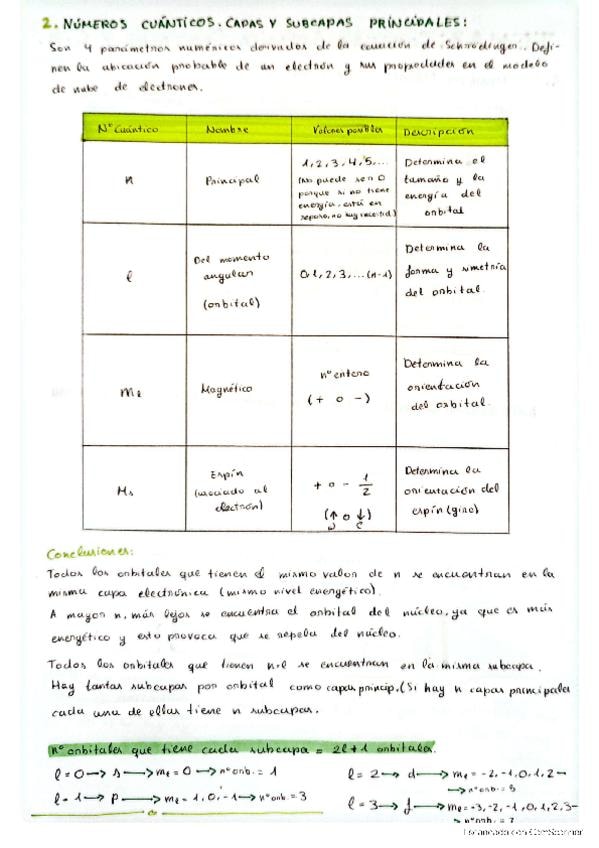 2. NÚMEROS CUÁNTICOS. CAPAS Y SUBCAPAS PRINCIPALES:
Son 4 parámetros numéricos derivados de la ecuación de Schrödinger. Defi-
nen la ubicación probable de un electrón y sus propiedades en el modelo
de nube de electrones.
Nº Cuántico Nombre Valores posibles Descripción
n
Principal
1, 2, 3, 4, 5, ...
(No puede ser 0
porque si no tiene
energía, está en
reposo, no hay
Determina el
tamaño y la
energía del
orbital
l
Del momento
angular
(orbital)
0, 1, 2, 3, ... (n-1)
Determina la
forma y simetría
del orbital.
ml
Magnético
nº entero
(+ o -)
Determina la
orientación
del orbital.
Ms
Espín
(asociado al
electrón)
+ o - 1/2
(↑ o ↓)
Determina la
orientación del
espín (giro)
Conclusiones:
Todos los orbitales que tienen el mismo valor de n se encuentran en la
misma capa electrónica (mismo nivel energético).
A mayor n, más lejos se encuentra el orbital del núcleo, ya que es más
energético y esto provoca que se repela del núcleo.
Todos los orbitales que tienen n=l se encuentran en la misma subcapa.
Hay tantas subcapas por orbital como capas princip. (Si hay n capas principales
cada una de ellas tiene n subcapas.
nº orbitales que tiene cada subcapa = 2l+1 orbitales.
l=0 → s → ml=0 → nº orb. = 1
l=1 → p → ml = 1, 0, -1 → nº orb. = 3
l=2 → d → ml = -2, -1, 0, 1, 2 →
→ nº orb. = 5
l=3 → f → ml = -3, -2, -1, 0, 1, 2, 3 →
→ nº orb. = 7
Escaneado con CamScanner